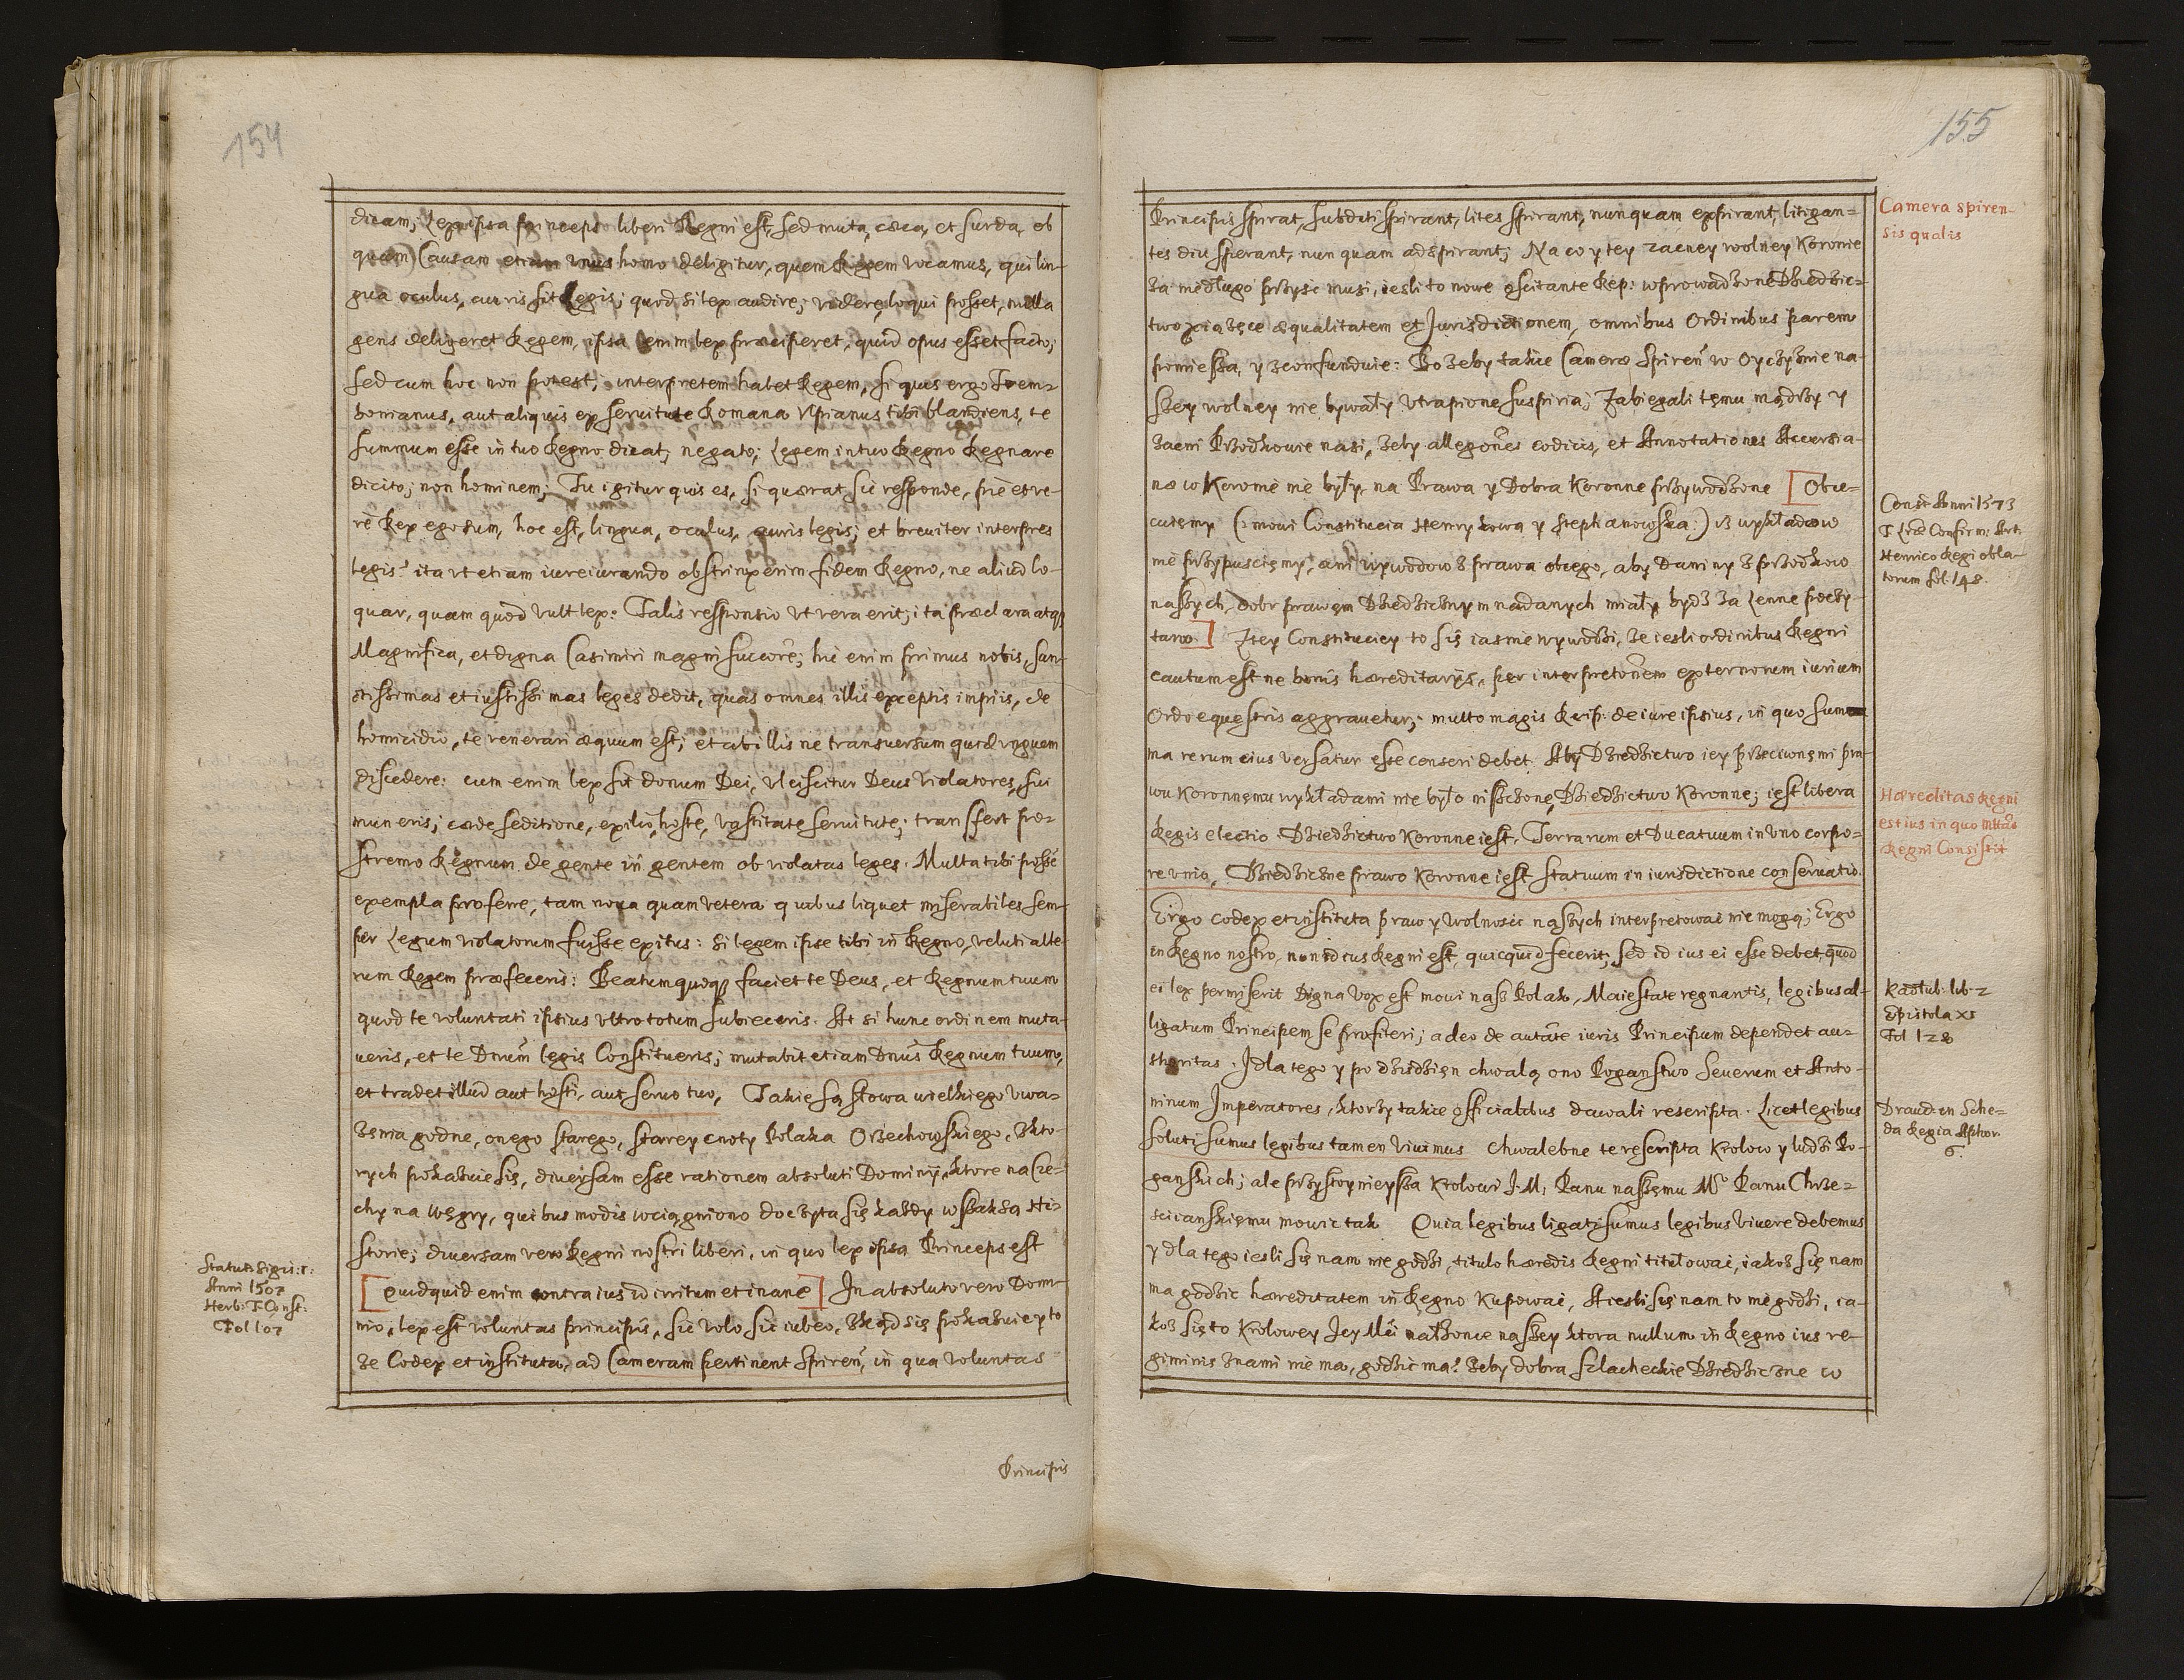 154
dicam; Lex ipsa princeps liberi Regni est, sed muta, cæca, et surda, ob
quam Causam etiam vnus homo deligitur, quem Regem vocamus, qui lin-
gua oculus, auris sit Legis; quod si lex audire; videre, loqui posset, nulla
gens deligeret Regem, ipsa enim lex præciperet, quid opus esset facto;
sed cum hoc non potest, interpretem habet Regem, si quis ergo
aut aliquis ex seruitute Romana Vlpianus tibi blandiens, te
summum esse in tuo Regno dicat, negato; Legem in tuo Regno Regnare
dicito; non hominem; Tu igitur quis es, si quærat sic responde, piè et ve-
rè Rex ego sum, hoc est, lingua, oculus, auris legis; et breuiter interpres
legis? ita vt etiam iureiurando obstrinxerim fidem Regno, ne aliud lo-
quar, quam quod vult lex: Talis responsio vt vera erit; ita præclara atq;
Magnifica, et digna Casimiri magni succ̃ore; hic enim primus nobis, san-
ctissimas et iustissimas leges dedit, quas omnes illis exceptis impiis, de
homicidio, te venerari æquum est; et ab illis ne transuersum quid vnguem
discedere: cum enim lex sit donum Dei, vlciscitur Deus violatores, sui
muneris; cæde seditione, exilio, hoste, vastitate seruitute; transfert po-
stremo Regnum de gente in gentem ob violatas leges. Multa tibi possē
exempla proferre, tam noua quam vetera quibus liquet miserabiles sem-
per Legum violatorum fuisse exitus: Si legem ipse tibi in Regno, veluti alte-
rum Regem præfeceris: Beatum quoq; faciet te Deus, et Regnum tuum
quod te voluntati ipsius vltro totum subieceris. At si hunc ordinem muta-
ueris, et te Dnūm legis Constitueris; mutabit etiam Dnūs Regnum tuum,
et tradet illud aut hosti, aut seruo tuo, Takie są słowa wielkiego vwa-
zenia godne, onego starego, starey cnoty Polaka Orzechowskiego, zkto-
rych pokazuie się, diuersam esse rationem absoluti Dominij, ktore na Cze-
chy na Węgry, quibus modis wciągniono doczyta się kazdy w Historie
diuersam vero Regni nostri liberi, in quo lex ipsa Princeps est
[quidquid enim contra ius id irritum et inane] In absoluto vero Domi-
nio, lex est voluntas principis, sic volo sic iubeo, zkąd się pokazuie y to
ze Codex et instituta, ad Cameram pertinent Spireñ, in qua voluntas
Principis
Statut: Sigis: 1:
Anni 1507
Herb: T. Const:
Fol 107
155
Principis spirat, subditi spirant, lites spirant, nunquam exspirant, litigan-
tes diu sperant, nunquam adspirant; Na co y tey zacney wolney Koronie
za niedługo przysć musi, iesli to nowe oscitante Rep: wprowadzone Dziedzic-
two xiążęce æqualitatem et Jurisdictionem, omnibus Ordinibus parem
pomiessa, y zconfunduie: Bo zeby takie Cameræ Spireñ w Oyczyznie na-
szey wolney nie bywały vtrapione suspiria; Zabiegali temu mądrzy y
zacni Przodkowie nasi, zeby allegoñes codicis, et Annotationes Accursia-
næ w Koronie nie były, na Prawa y Dobra Koronne przywodzone [Obie-
cuiemy (: mowi Constitucia Henrykowa y Stephanowska:) iz wykładow
nie przypuscięmy, ani wywodow z prawa obcego, aby Daniny z przodkow
naszych, dobr prawem Dziedzicznym nadanych miały bydz za Lenne poczy-
tane] Ztey Constitucyey to się iasnie wywodzi, ze iesli ordinibus Regni
cautum est ne bonis hæreditarijs, per interpretoñem externorum iurium
Ordo equestris aggrauetur; multo magis Reip: de iure ipsius, in quo sum-
ma rerum eius versatur esse conseri debet. Aby Dziedzictwo iey przeciwnemi pra-
wu Koronnemu wykładami nie było niszczone, Dziedzictwo Koronne; iest libera
Regis electio. Dziedzictwo Koronne iest, Terrarum et Ducatuum in vno corpo-
re vnio, Dziedziczne prawo Koronne iest Statuum in iurisdictione conseruatio.
Ergo codex et instituta praw y wolnosci naszych interpretować nie mogą; Ergo
in Regno nostro, non id ius Regni est, quicquid fecerit; sed id ius ei esse debet quod
ei lex permiserit Digna vox est mowi nasz Polak, Maiestate regnantis, legibus al-
ligatum Principem se profiteri; adeo de autãte iuris Principum dependet au-
thoritas. Jdla tego y po dzisdzień chwalą ono Poganstwo Seuerum et Anto-
ninum Imperatores, ktorzy takie officialibus dawali rescripta. Licet legibus
soluti sumus legibus tamen viuimus Chwalebne te rescripta Krolow y ludzi Po-
ganskich; ale przystoynieysza Krolowi J.M. Panu naszemu Mᵒ Panu Chrze-
scianskiemu mowic tak Quia legibus ligati sumus legibus viuere debemus
y dla tego iesli się nam nie godzi, titulo hæredis Regni titułować, iakoz się nam
ma godzic hæreditatem in Regno Kupować, A iesli się nam to nie godzi, ia-
koz się to Krolowey Jey Mći małzonce naszey ktora nullum in Regno ius re-
giminis znami nie ma, godzic ma? Zeby dobra szlacheckie Dziedziczne w
Camera spiren-
sis qualis
Const: Anni 1573
T. Confirm: Art:
Henrico Regi obla-
torum fol: 148.
Hæreditas Regni
est ius in quo
Regni Consistit
lib: 2
Epistola
Fol 128
in Sche-
da Regia Aphor:
6.